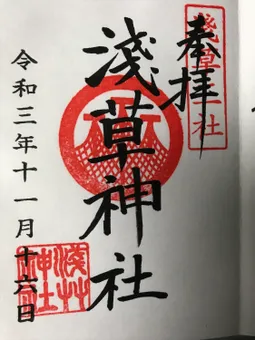 奉拝
淺草三社
淺草神社
令和三年十一月十六日
淺艸神社